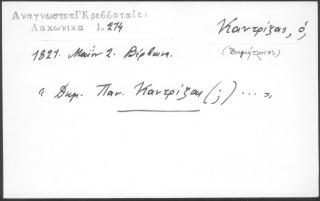 ΑναγνωστοπΓΚρεββαταίε:
Λακωνικα 1.274
Καντρίζας, ὁ,
(Δημήτριος)
1821. Μαΐου 2. Βέρβαινα.
« Δημ. Παν. Καντρίζας (;) ... »,